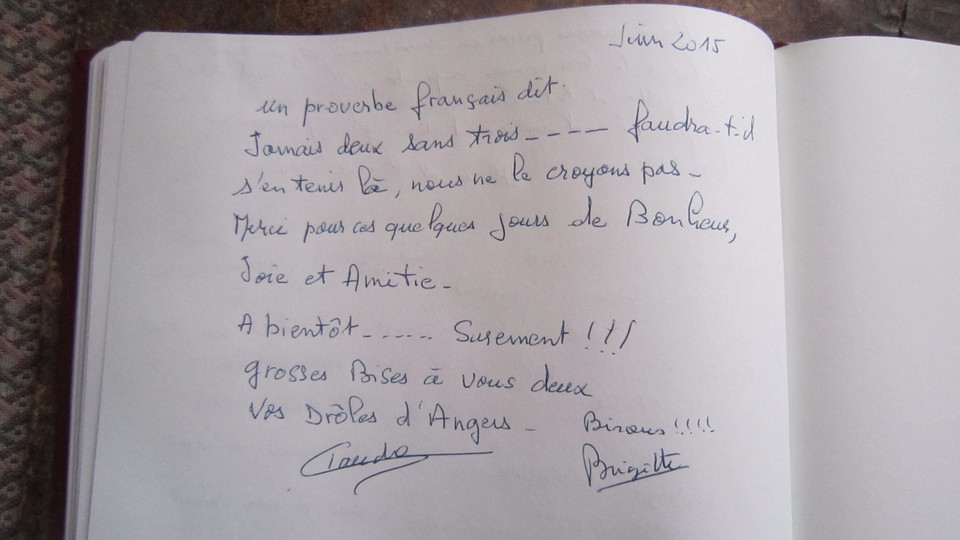 Juin 2015
un proverbe français dit.
Jamais deux sans trois---- faudra-t-il
s'en tenir là, nous ne le croyons pas-
Merci pour ces quelques jours de Bonheur,
Joie et Amitie-
A bientôt...... Surement !!!
grosses Bises à vous deux
Vos Drôles d'Angers - Bisous !!!!
Brigitte